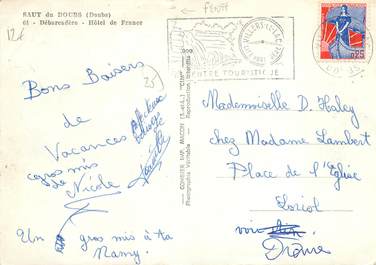 SAUT du DOUBS (Doubs)
61 - Débarcadère - Hôtel de France
Bons Baisers
de
Vacances
gros mis
de Nicole
Un gros mis à ta
Mamy.
COMBIER IMP. MACON (S.-et-L.) "CIM"
Photographie Véritable - Reproduction Interdite
CENTRE TOURISTIQUE
0,25
Mademoiselle D. Haley
chez Madame Lambert
Place de l'Eglise
Loriol
Drôme